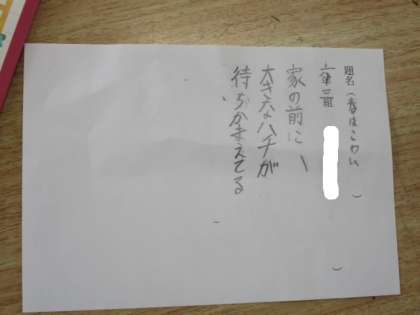 題名(春はこわい)
家の前に
大きなハチが
待ちかまえてる